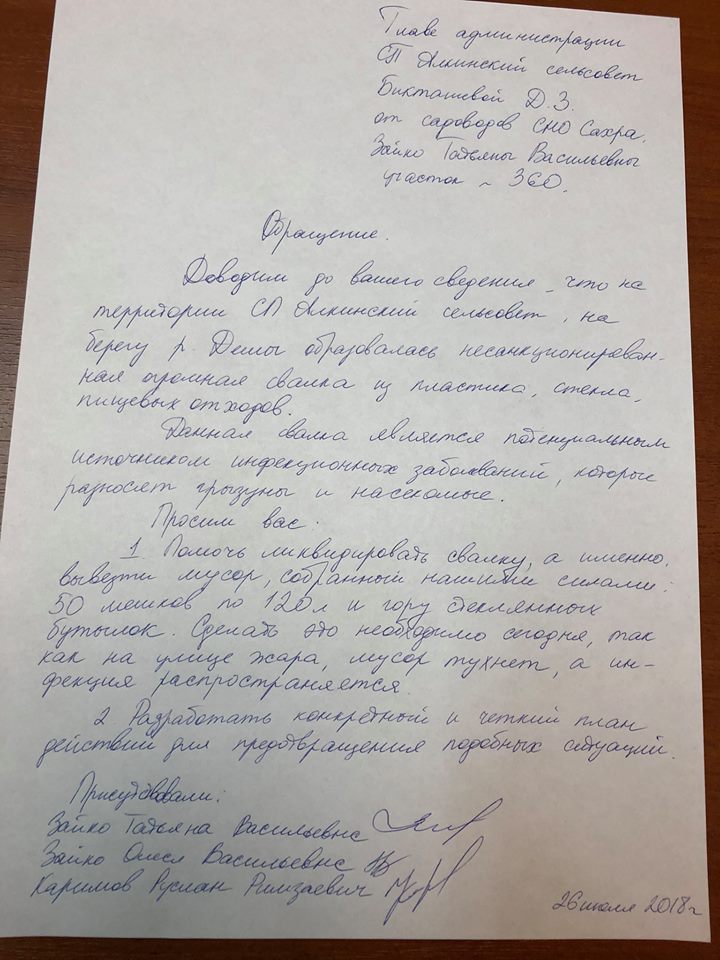 Главе администрации
СП Алкинский сельсовет
Бикташевой Д.З.
от садоводов СНО Сахра.
Зайко Татьяны Васильевны
участок ~ 360.
Обращение.
Доводим до вашего сведения, что на
территории СП Алкинский сельсовет, на
берегу р. Демы образовалась несанкционирован-
ная огромная свалка из пластика, стекла,
пищевых отходов.
Данная свалка является потенциальным
источником инфекционных заболваний, которые
разносят грызуны и насекомые.
Просим вас:
1. Помочь ликвидировать свалку, а именно,
вывезти мусор, собранный нашими силами:
50 мешков по 120л и гору стеклянных
бутылок. Сделать это необходимо сегодня, так
как на улице жара, мусор тухнет, а ин-
фекция распространяется.
2. Разработать конкретный и четкий план
действий для предотвращения подобных ситуаций.
Присутствовали:
Зайко Татьяна Васильевна
Зайко Олеся Васильевна
Каримов Руслан Римзаевич
26 июля 2018г